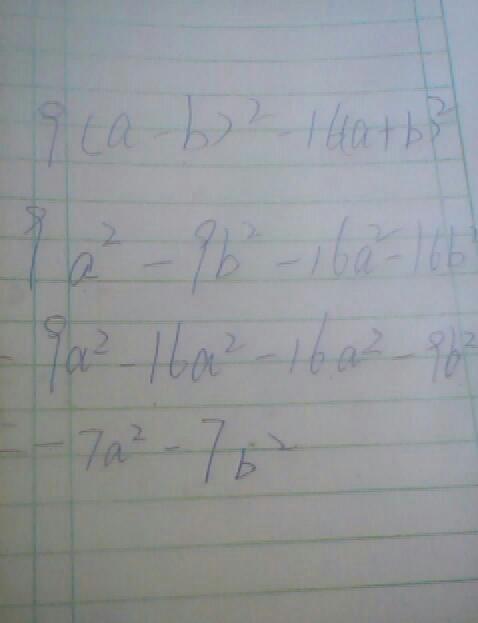 9(a-b)²-16(a+b)²
9a²-9b²-16a²-16b²
=9a²-16a²-16a²-9b²
=-7a²-7b²